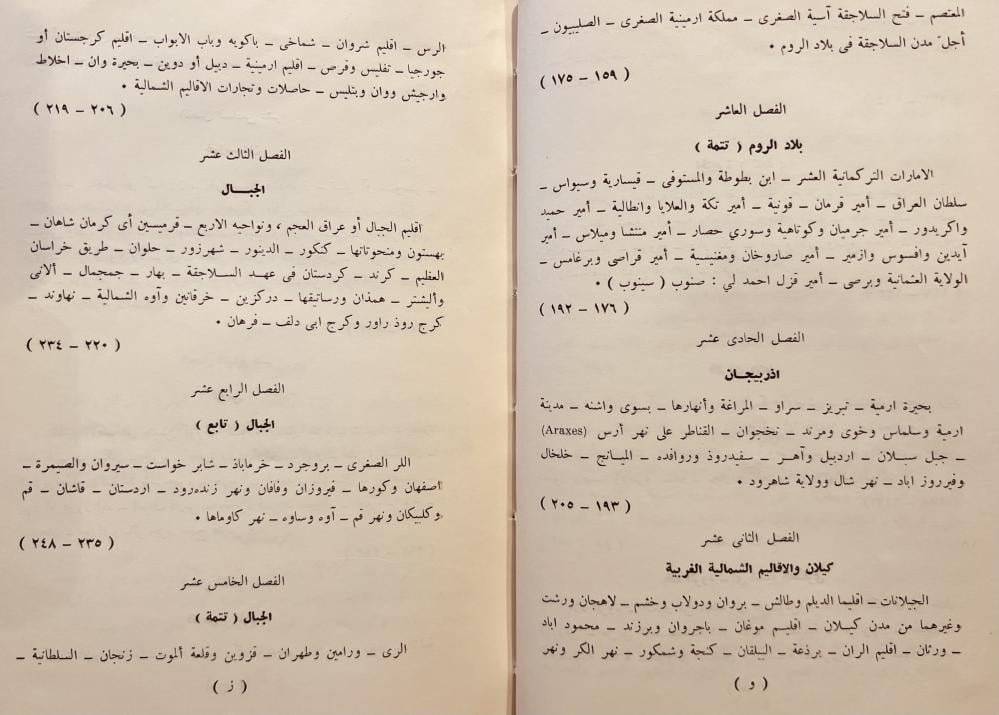 المعتصم ـ فتح السلاجقة آسية الصغرى ـ مملكة ارمينية الصغرى ـ الصليبيون ـ
أجلّ مدن السلاجقة فى بلاد الروم •
( ١٥٩ ـ ١٧٥ )
الفصل العاشر
بلاد الروم ( تتمة )
الامارات التركمانية العشر ـ ابن بطوطة والمستوفى ـ قيسارية وسيواس ـ
سلطان العراق ـ أمير قرمان ـ قونية ـ أمير تكة والعلايا وانطالية ـ أمير حميد
واكريدور ـ أمير جرميان وكوتاهية وسوري حصار ـ أمير منتشا وميلاس ـ أمير
آيدين وافسوس وازمير ـ أمير صاروخان ومغنيسية ـ أمير قراصى وبرغامس ـ
الولاية العثمانية وبرصى ـ أمير قزل احمد لي : صنوب ( سينوب ) •
( ١٧٦ ـ ١٩٢ )
الفصل الحادى عشر
اذربيجان
بحيرة ارمية ـ تبريز ـ سراو ـ المراغة وأنهارها ـ بسوى واشنه ـ مدينة
ارمية وسلماس وخوى ومرند ـ نخجوان ـ القناطر على نهر أرس (Araxes)
ـ جبل سبلان ـ اردبيل وآهر ـ سفيدروذ وروافده ـ الميانج ـ خلخال
وفيروز اباد ـ نهر شال وولاية شاهرود •
( ١٩٣ ـ ٢٠٥ )
الفصل الثانى عشر
كيلان والاقاليم الشمالية الغربية
الجيلانات ـ اقليما الديلم وطالش ـ بروان ودولاب وخشم ـ لاهجان ورشت
وغيرهما من مدن كيلان ـ اقليم موغان ـ باجروان وبرزند ـ محمود اباد
ـ ورثان ـ اقليم الران ـ برذعة ـ البيلقان ـ كنجة وشمكور ـ نهر الكر ونهر
( و )
الرس ـ اقليم شروان ـ شماخى ـ باكويه وباب الابواب ـ اقليم كرجستان أو
جورجيا ـ تفليس وقرص ـ اقليم ارمينية ـ دبيل أو دوين ـ بحيرة وان ـ اخلاط
وارجيش ووان وبتليس ـ حاصلات وتجارات الاقاليم الشمالية •
( ٢٠٦ ـ ٢١٩ )
الفصل الثالث عشر
الجبال
اقليم الجبال أو عراق العجم ، ونواحيه الاربع ـ قرميسين أى كرمان شاهان ـ
بهستون ومنحوتاتها ـ كنكور ـ الدينور ـ شهرزور ـ حلوان ـ طريق خراسان
العظيم ـ كرند ـ كردستان فى عهد السلاجقة ـ بهار ـ جمجمال ـ ألانى
وأليشتر ـ همذان ورساتيقها ـ دركزين ـ خرقانين وآوه الشمالية ـ نهاوند ـ
كرج روذ راور وكرج ابى دلف ـ فرهان •
( ٢٢٠ ـ ٢٣٤ )
الفصل الرابع عشر
الجبال ( تابع )
اللر الصغرى ـ بروجرد ـ خرماباذ ـ شابر خواست ـ سيروان والصيمرة ـ
اصفهان وكورها ـ فيروزان وفافان ونهر زنده‌رود ـ اردستان ـ قاشان ـ قم
وكلبيكان ونهر قم ـ آوه وساوه ـ نهر كاوماها •
( ٢٣٥ ـ ٢٤٨ )
الفصل الخامس عشر
الجبال ( تتمة )
الرى ـ ورامين وطهران ـ قزوين وقلعة ألموت ـ زنجان ـ السلطانية ـ
( ز )